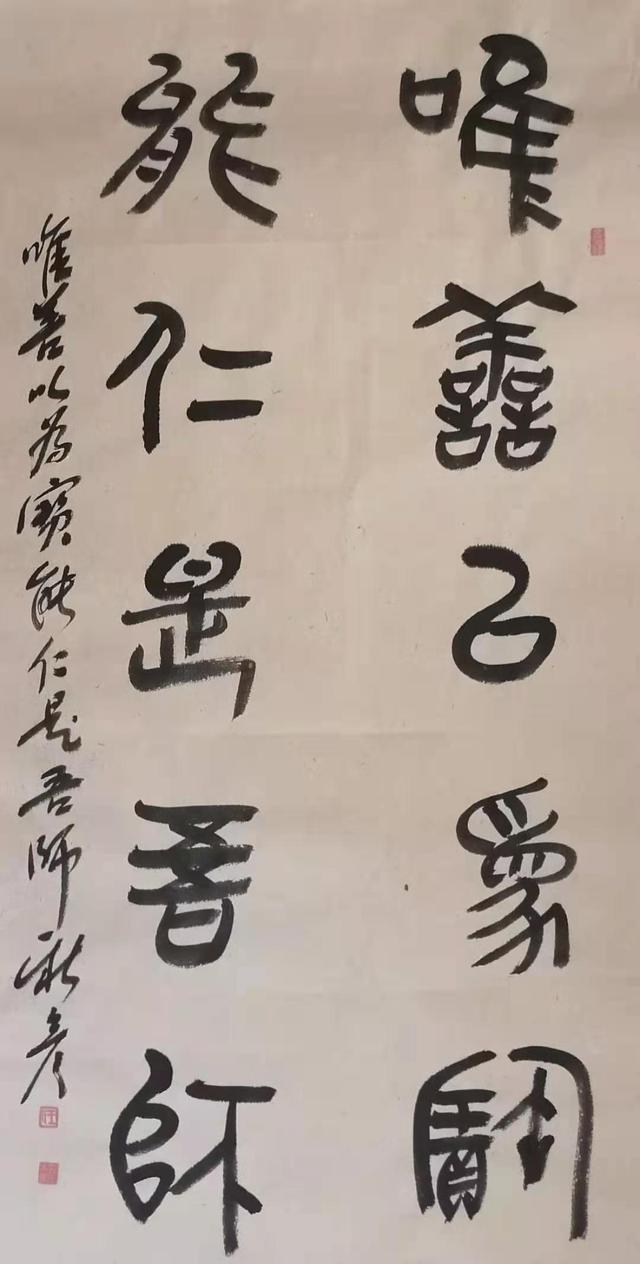 唯善以為寶
能仁是吾師
唯善以为寶能仁是吾師